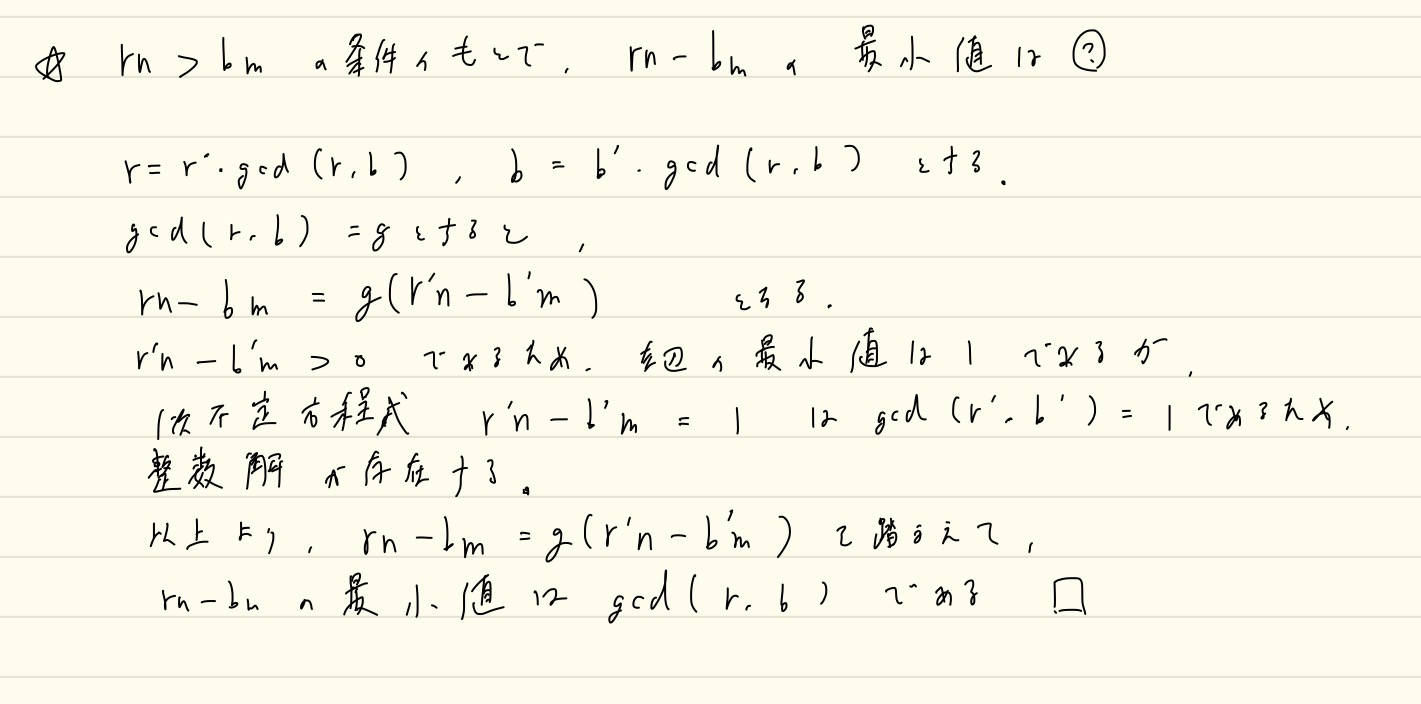 ☆ rn > bm の条件のもとで, rn - bm の 最小値は ?
r = r'・gcd(r, b) , b = b'・gcd(r, b) とする.
gcd(r, b) = g とすると,
rn - bm = g(r'n - b'm) となる.
r'n - b'm > 0 であるため, 左辺の最小値は 1 であるが,
1次不定方程式 r'n - b'm = 1 は gcd(r', b') = 1 であるため,
整数解が存在する.
以上より, rn - bm = g(r'n - b'm) を踏まえて,
rn - bm の最小値は gcd(r, b) である □